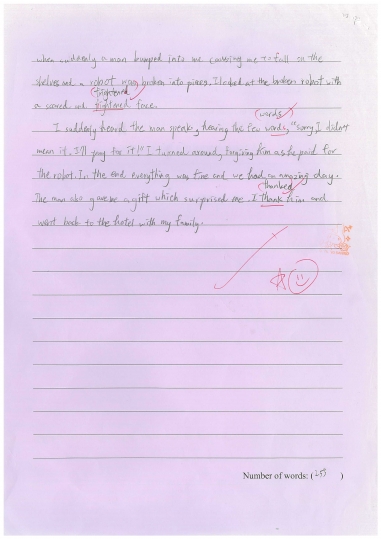 when suddenly a man bumped into me causing me to fall on the
shelves and a robot was broken into pieces. I looked at the broken robot with
frightened
a scared and frightened face.
words
I suddenly heard the man speak, hearing his few words, "sorry I didn't
mean it, I'll pay for it!" I turned around, forgiving him as he paid for
the robot. In the end everything was fine and we had an amazing day.
thanked
The man also gave me a gift which surprised me. I thank him and
went back to the hotel with my family.
Number of words: (255)